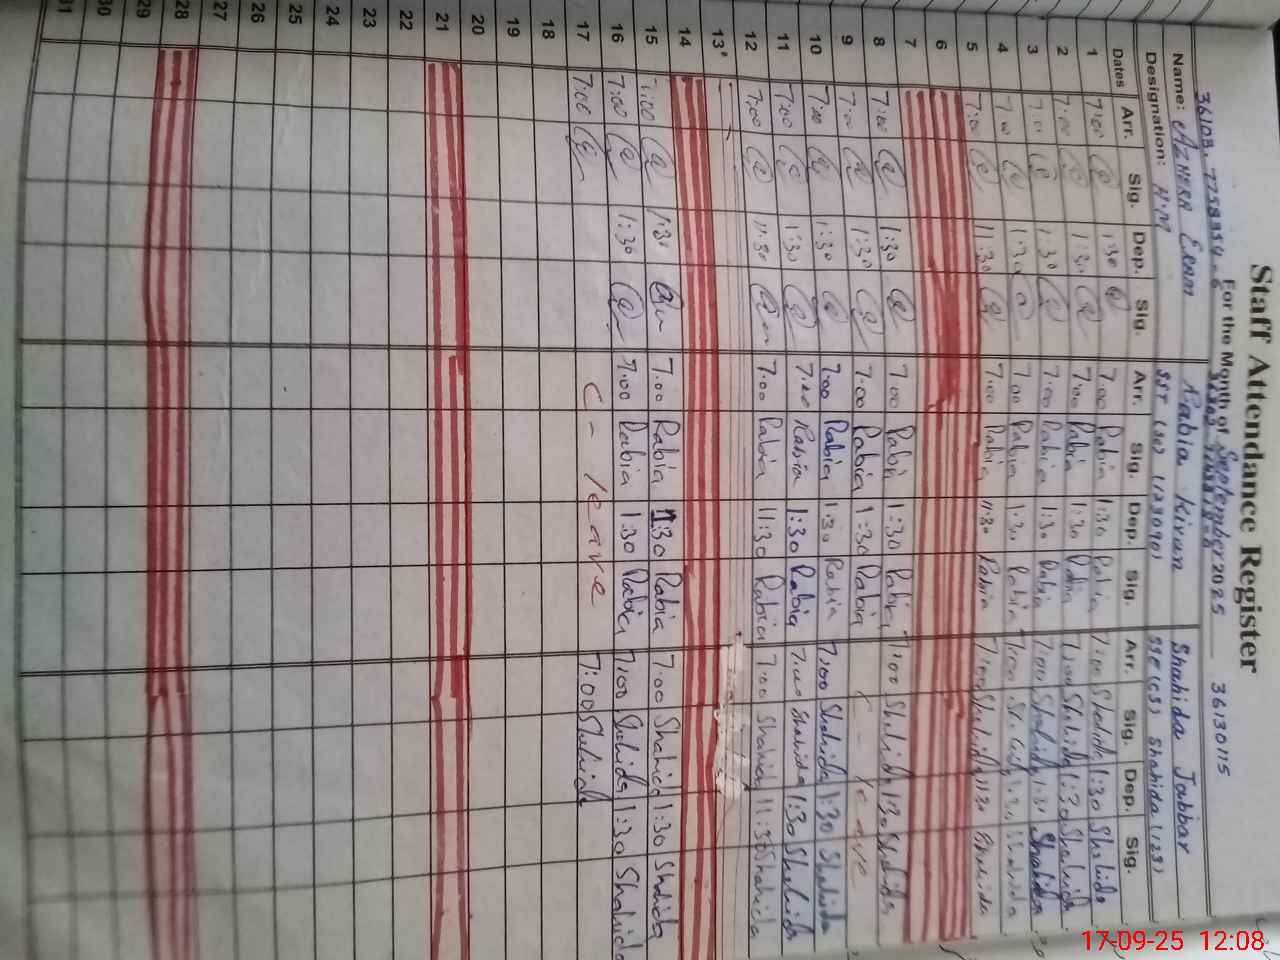 Staff Attendance Register
For the Month of September 2025
36103-7758954-6
36130115
Name: Azhera Exam Rabia Kiran Shahida Jabbar
Designation: H.M SST (SC) (123090) SSE (CS) Shahida (123)
Dates Arr. Sig. Dep. Sig. Arr. Sig. Dep. Sig. Arr. Sig. Dep. Sig.
1 7:00 1:30 7:00 Rabia 1:30 Rabia 7:00 Shahida 1:30 Shahida
2 7:00 1:30 7:00 Rabia 1:30 Rabia 7:00 Shahida 1:30 Shahida
3 7:00 1:30 7:00 Rabia 1:30 Rabia 7:00 Shahida 1:30 Shahida
4 7:00 1:30 7:00 Rabia 1:30 Rabia 7:00 1:30 Shahida
5 7:00 11:30 7:00 Rabia 11:30 Rabia 7:00 Shahida 11:30 Shahida
6
7
8 7:00 1:30 7:00 Rabia 1:30 Rabia 7:00 Shahida 1:30 Shahida
9 7:00 1:30 7:00 Rabia 1:30 Rabia C - leave
10 7:00 1:30 7:00 Rabia 1:30 Rabia 7:00 Shahida 1:30 Shahida
11 7:00 1:30 7:00 Rabia 1:30 Rabia 7:00 Shahida 1:30 Shahida
12 7:00 11:30 7:00 Rabia 11:30 Rabia 7:00 Shahida 11:30 Shahida
13
14
15 7:00 1:30 7:00 Rabia 1:30 Rabia 7:00 Shahida 1:30 Shahida
16 7:00 1:30 7:00 Rabia 1:30 Rabia 7:00 Shahida 1:30 Shahida
17 7:00 C - leave 7:00 Shahida
18
19
20
21
22
23
24
25
26
27
28
29
30
31
17-09-25 12:08